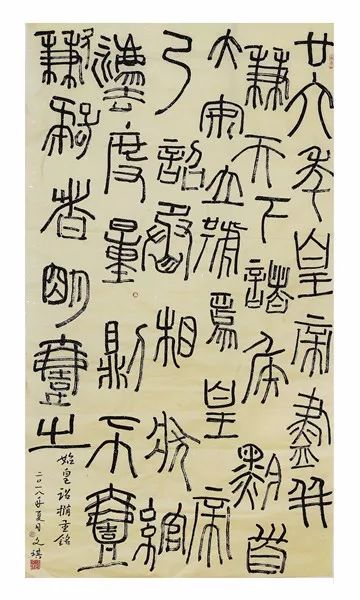 廿六年皇帝盡并
兼天下諸侯黔首
大安立號爲皇帝
乃詔丞相狀綰
灋度量則不壹
歉疑者明壹之
始皇詔橢量銘
二〇一八年夏月文琪